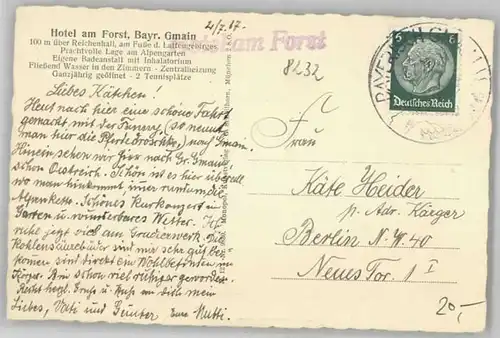 Hotel am Forst, Bayr. Gmain
100 m über Reichenhall, am Fuße d. Lattengebirges
Prachtvolle Lage am Alpengarten
Eigene Badeanstalt mit Inhalatorium
Fließend Wasser in den Zimmern - Zentralheizung
Ganzjährig geöffnet - 2 Tennisplätze
Hotel am Forst
8232
Deutsches Reich
Liebes Kätchen!
Heut nach hier eine schöne Fahrt
gemacht mit der (so nennt
man hier die Pferdedroschke) nach Gmain.
Hinein sehen wir hier nach Gr. Gmain
schon Östreich. Schön ist es hier überall
wo man hinkommt immer rundum die
Alpenkette. Schönes Kurkonzert im
Garten u. wunderbares Wetter. Ich
viel am Gradierwerk. Die
Kohlensäurebäder sind mir sehr gut be-
kommen sind direkt ein Wohlbefinden im
Körper. Bin schon viel ruhiger geworden.
Recht hrzl. Gruß u. Kuß an dich mein
Liebes, Vati und Günter Eure Mutti.
Frau
Käte Heider
p. Adr. Kaeger
Berlin N.W. 40
Neues Tor. 1 I
20,-